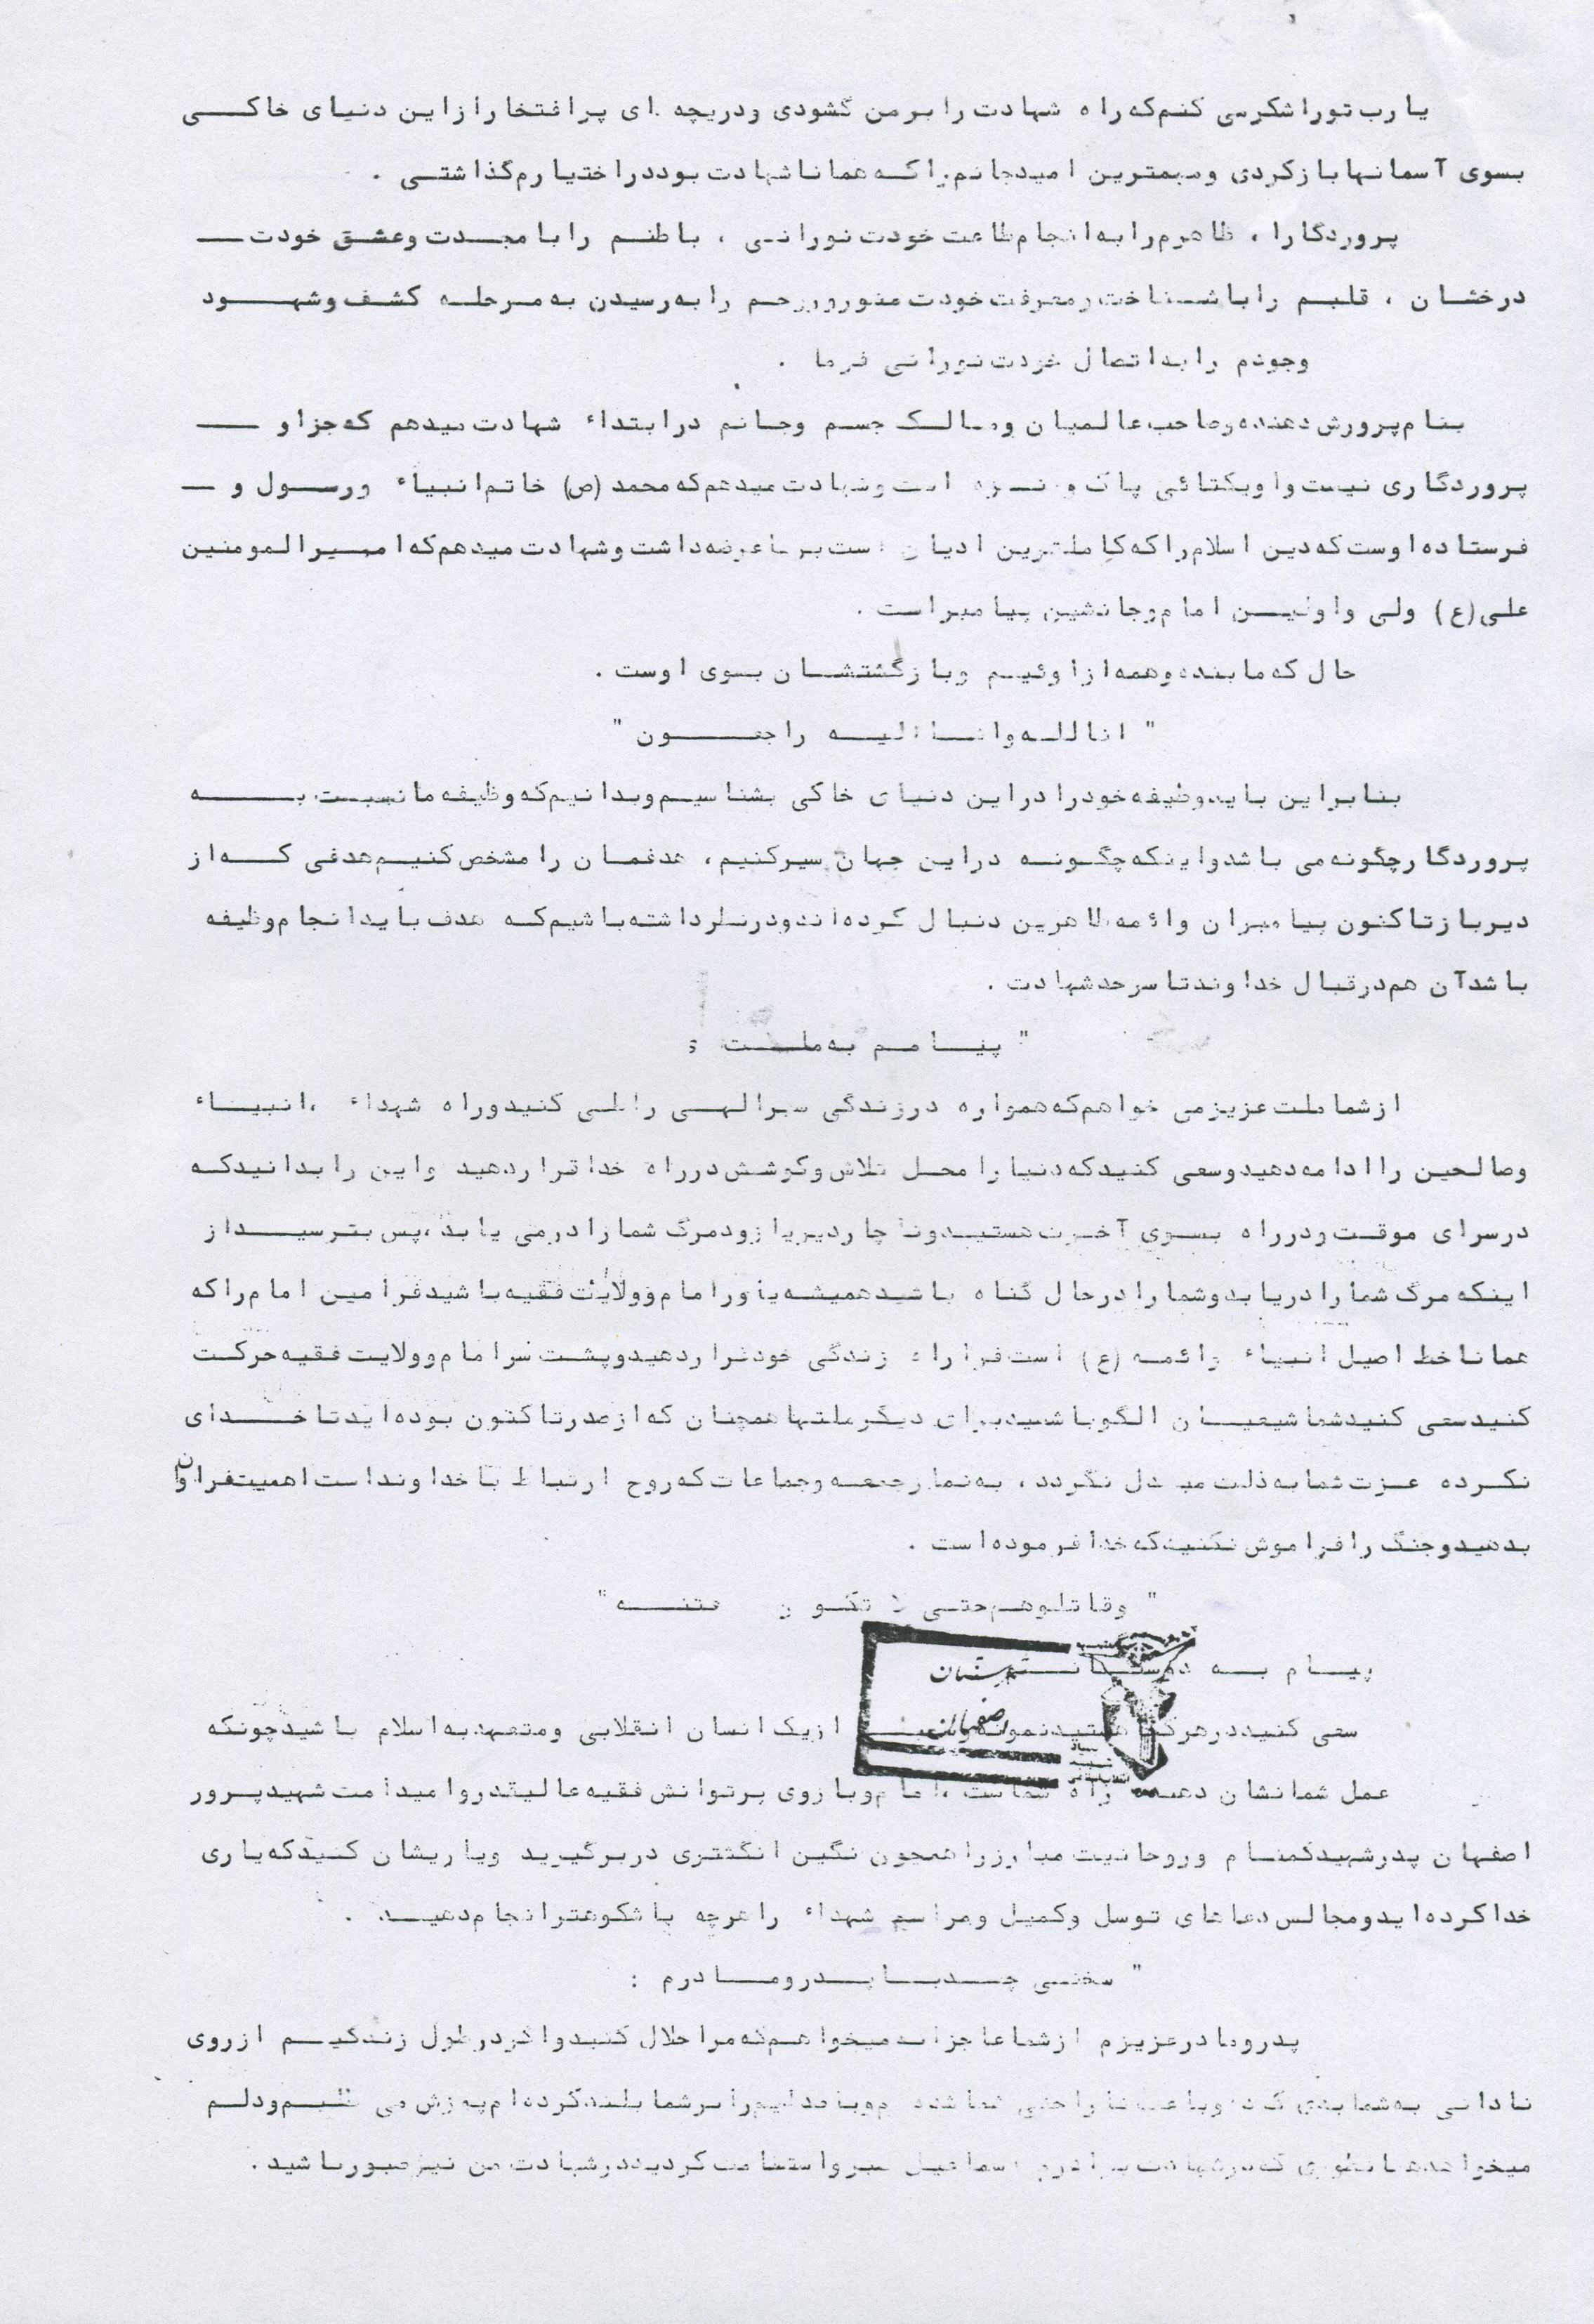 یارب تورا شکر می کنم که راه شهادت را بر من گشودی ودریچه ای پرافتخار ازاین دنیای خاکی
بسوی آسمانها باز کردی ومهمترین امید جانم را که همانا شهادت بود در اختیارم گذاشتی .
پروردگارا ، ظاهرم را به انجام طاعت خودت نورانی ، باطنم را با محبت وعشق خودت
درخشان ، قلبم را با شناخت ومعرفت خودت منور وروحم را به رسیدن به مرحله کشف وشهود
وجودم را به اتصال خودت نورانی فرما .
بنام پرورش دهنده وصاحب عالمیان ومالک جسم وجانم در ابتداء شهادت میدهم که جز او
پروردگاری نیست واویکتائی پاک و منزه است وشهادت میدهم که محمد (ص) خاتم انبیاء ورسول و
فرستاده اوست که دین اسلام را که کاملترین ادیان است بر ما عرضه داشت وشهادت میدهم که امیرالمومنین
علی (ع) ولی واولین امام وجانشین پیامبر است .
حال که ما بنده وهمه از اوئیم وبازگشتشان بسوی اوست .
" انا لله وانا الیه راجعون "
بنابراین باید وظیفه خود را دراین دنیای خاکی بشناسیم وبدانیم که وظیفه ما نسبت به
پروردگار چگونه می باشد واینکه چگونه دراین جهان سیر کنیم ، هدفمان را مشخص کنیم هدفی که از
دیرباز تاکنون پیامبران وائمه طاهرین دنبال کرده اند ودرنظر داشته باشیم که هدف باید انجام وظیفه
باشد آن هم درقبال خداوند تا سرحد شهادت .
" پیامم به ملت ;
از شما ملت عزیز می خواهم که همواره در زندگی سیر الهی را طی کنید وراه شهداء ، انبیاء
وصالحین را ادامه دهید وسعی کنید که دنیا را محل تلاش وکوشش در راه خدا قرار دهید واین را بدانید که
در سرای موقت ودر راه بسوی آخرت هستید وناچار دیر یا زود مرگ شما را در می یابد ، پس بترسید از
اینکه مرگ شما را دریابد وشما را درحال گناه باشید همیشه یاور امام وولایت فقیه باشید فرامین امام را که
همانا خط اصیل انبیاء وائمه (ع) است فرا راه زندگی خود قرار دهید وپشت سر امام وولایت فقیه حرکت
کنید سعی کنید شما شیعیان الگو باشید برای دیگر ملتها همچنان که از صدر تاکنون بوده اید تا خدای
نکرده عزت شما به ذلت مبدل نگردد ، به نماز جمعه وجماعات که روح ارتباط با خداوند است اهمیت فراوان
بدهید وجنگ را فراموش نکنید که خدا فرموده است .
" وقاتلوهم حتی لا تکون فتنه "
پیام به دوستانم
سعی کنید در هر کجا هستید نمونه باشید از یک انسان انقلابی ومتعهد به اسلام باشید چونکه
عمل شما نشان دهنده راه شماست ، امام وبازوی پرتوانش فقیه عالیقدر وامید امت شهید پرور
اصفهان پدر شهید گمنام وروحانیت مبارز را همچون نگین انگشتری دربر گیرید ویاریشان کنید که یاری
خدا کرده اید ومجالس دعاهای توسل وکمیل ومراسم شهداء را هرچه باشکوهتر انجام دهید .
" سخنی چند با پدر ومادرم :
پدر ومادر عزیزم از شما عاجزانه میخواهم که مرا حلال کنید واگر در طول زندگیم از روی
نادانی به شما بدی کرده وباعث ناراحتی شما شده ام وبا صدایم را بر شما بلند کرده ام پوزش می طلبم ودلم
میخواهد همانطوری که در شهادت برادرم اسماعیل صبر واستقامت کردید در شهادت من نیز صبور باشید .